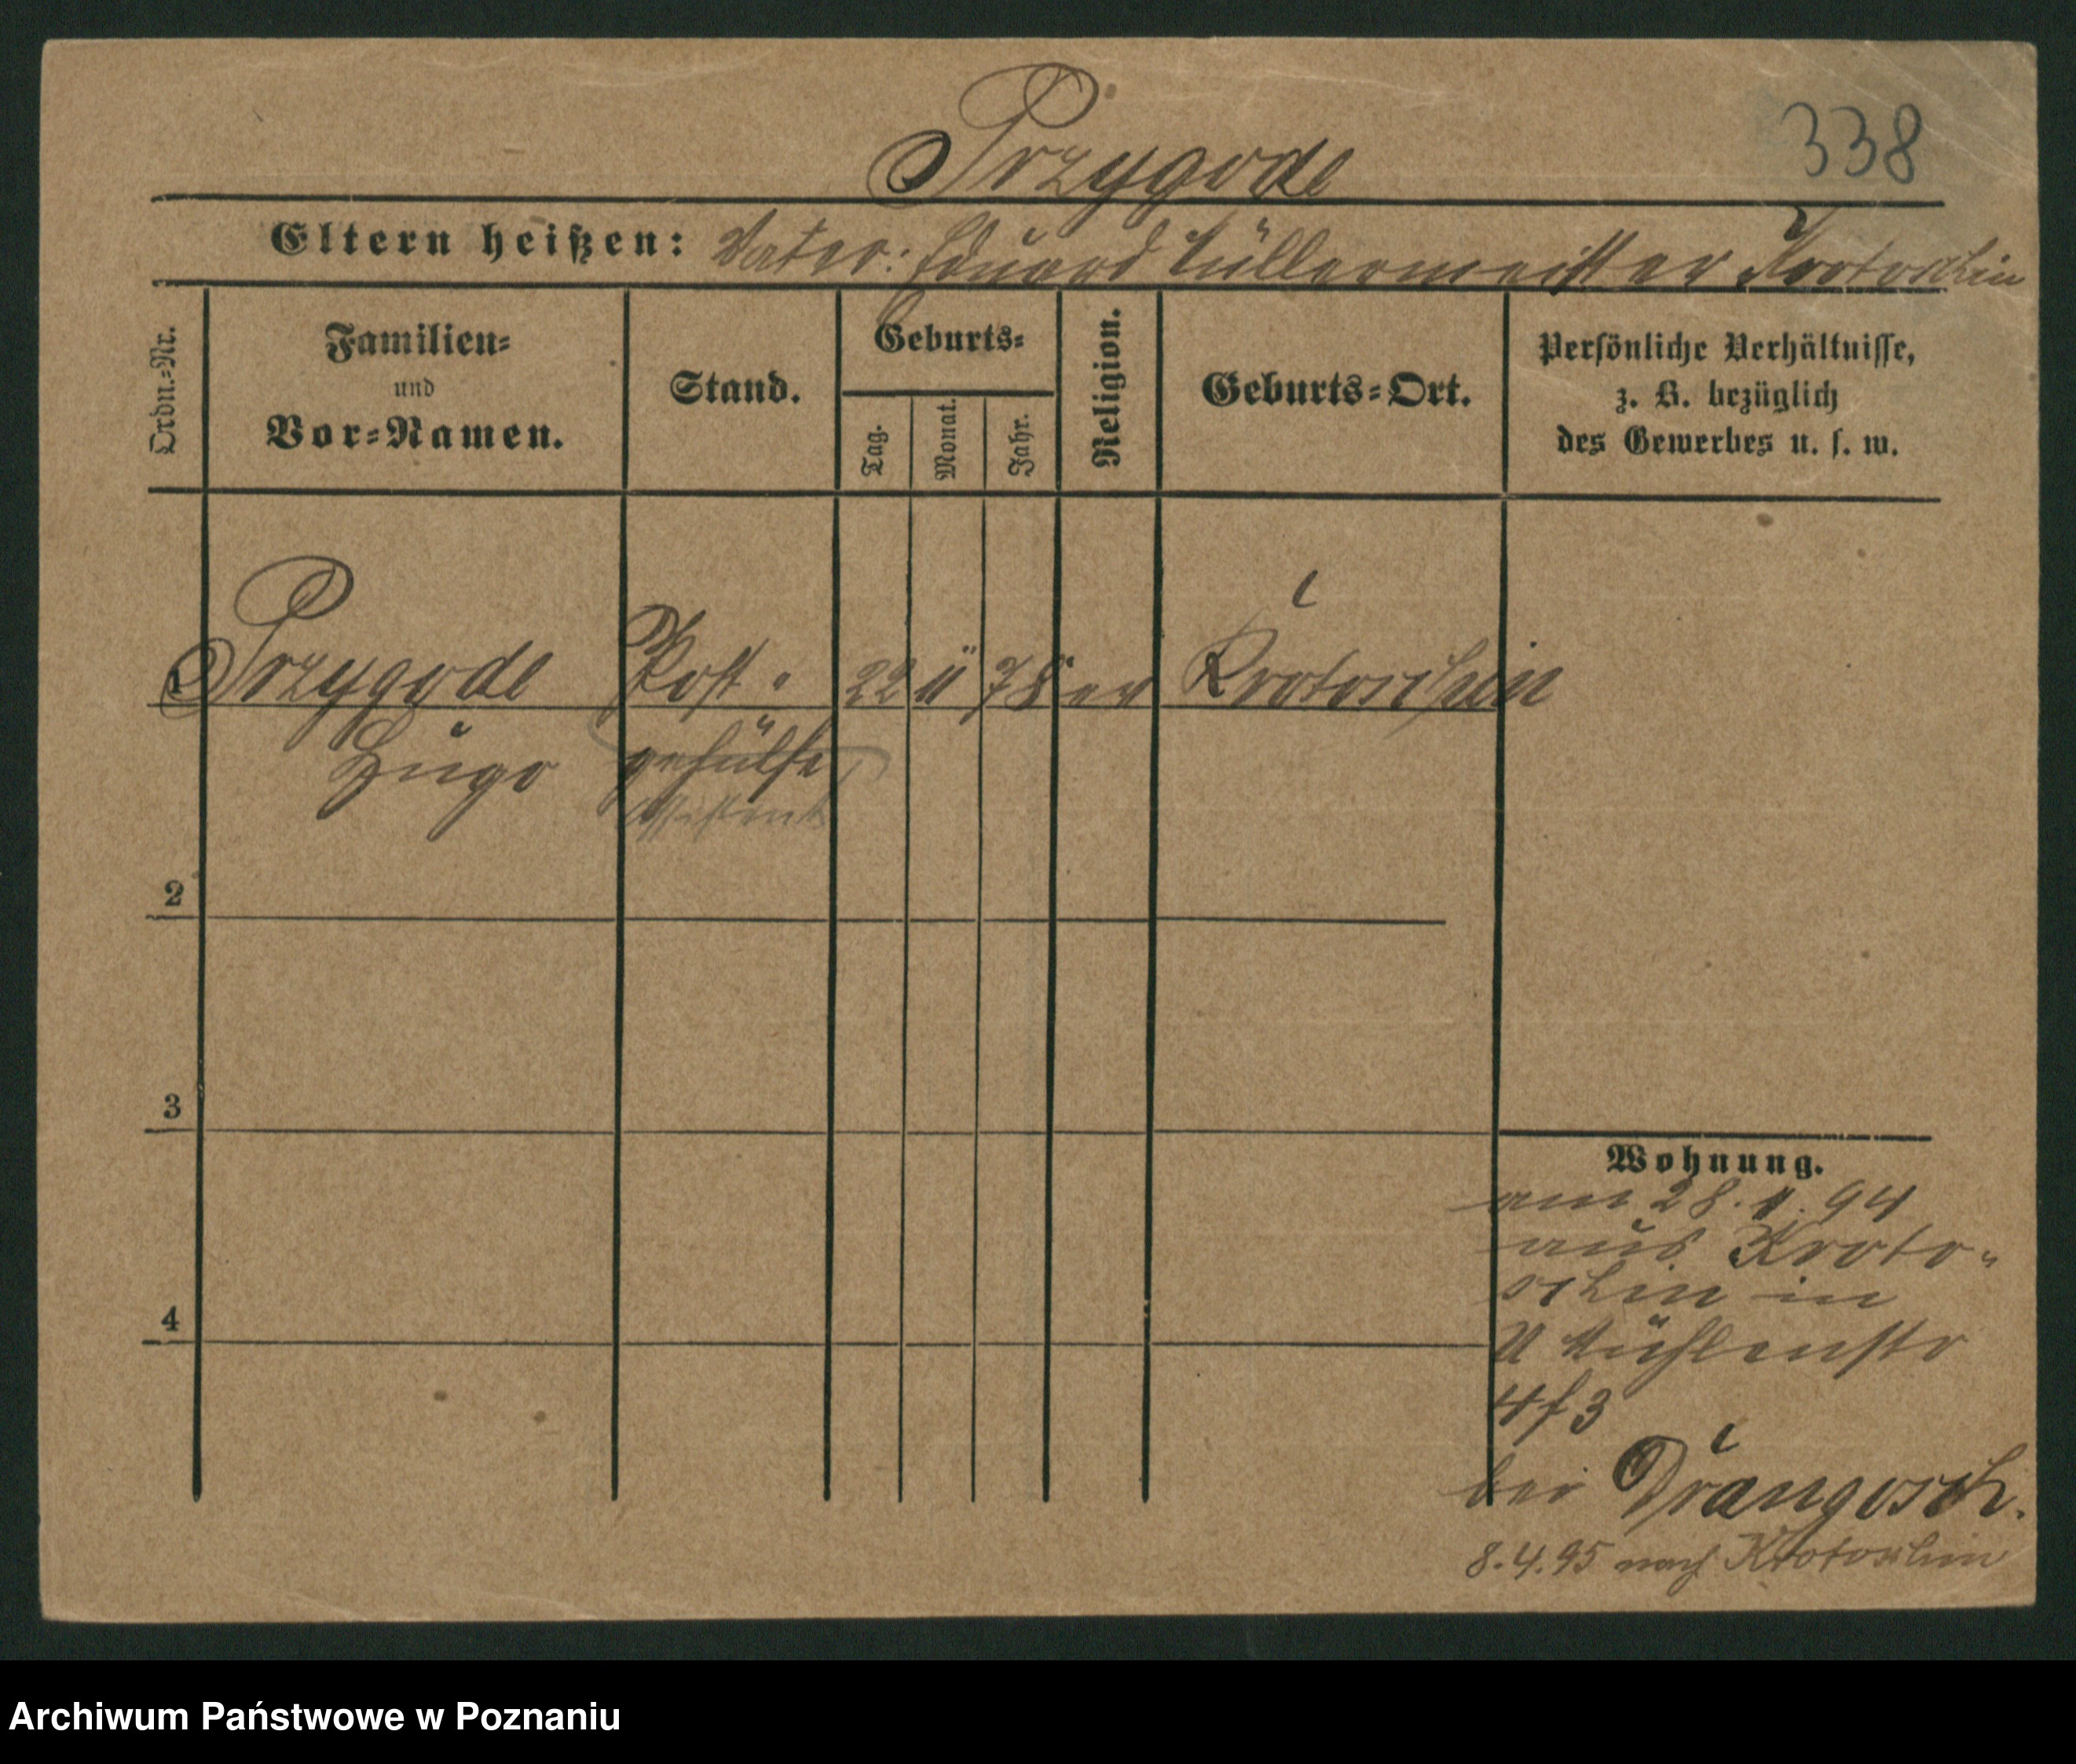 Przygode
338
Eltern heißen: Vater: Eduard Müllermeister Krotoschin
Ordn.-Nr.
Familien-
und
Vor-Namen.
Stand.
Geburts-
Tag.
Monat.
Jahr.
Religion.
Geburts-Ort.
Persönliche Verhältnisse,
z. B. bezüglich
des Gewerbes u. s. w.
1 Przygode Post- 22 11 78 ev Krotoschin
Hugo gehülfe
Assistent
2
3
4
Wohnung.
am 28. 11. 94
aus Kroto-
schin in
U Mühlenstr
4 f 3
bei Drangosch.
8.4.95 nach Krotoschin
Archiwum Państwowe w Poznaniu